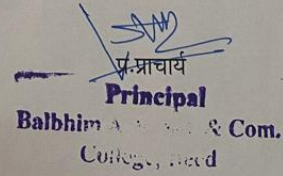 प्र.प्राचार्य
Principal
Balbhim & Com.
College,